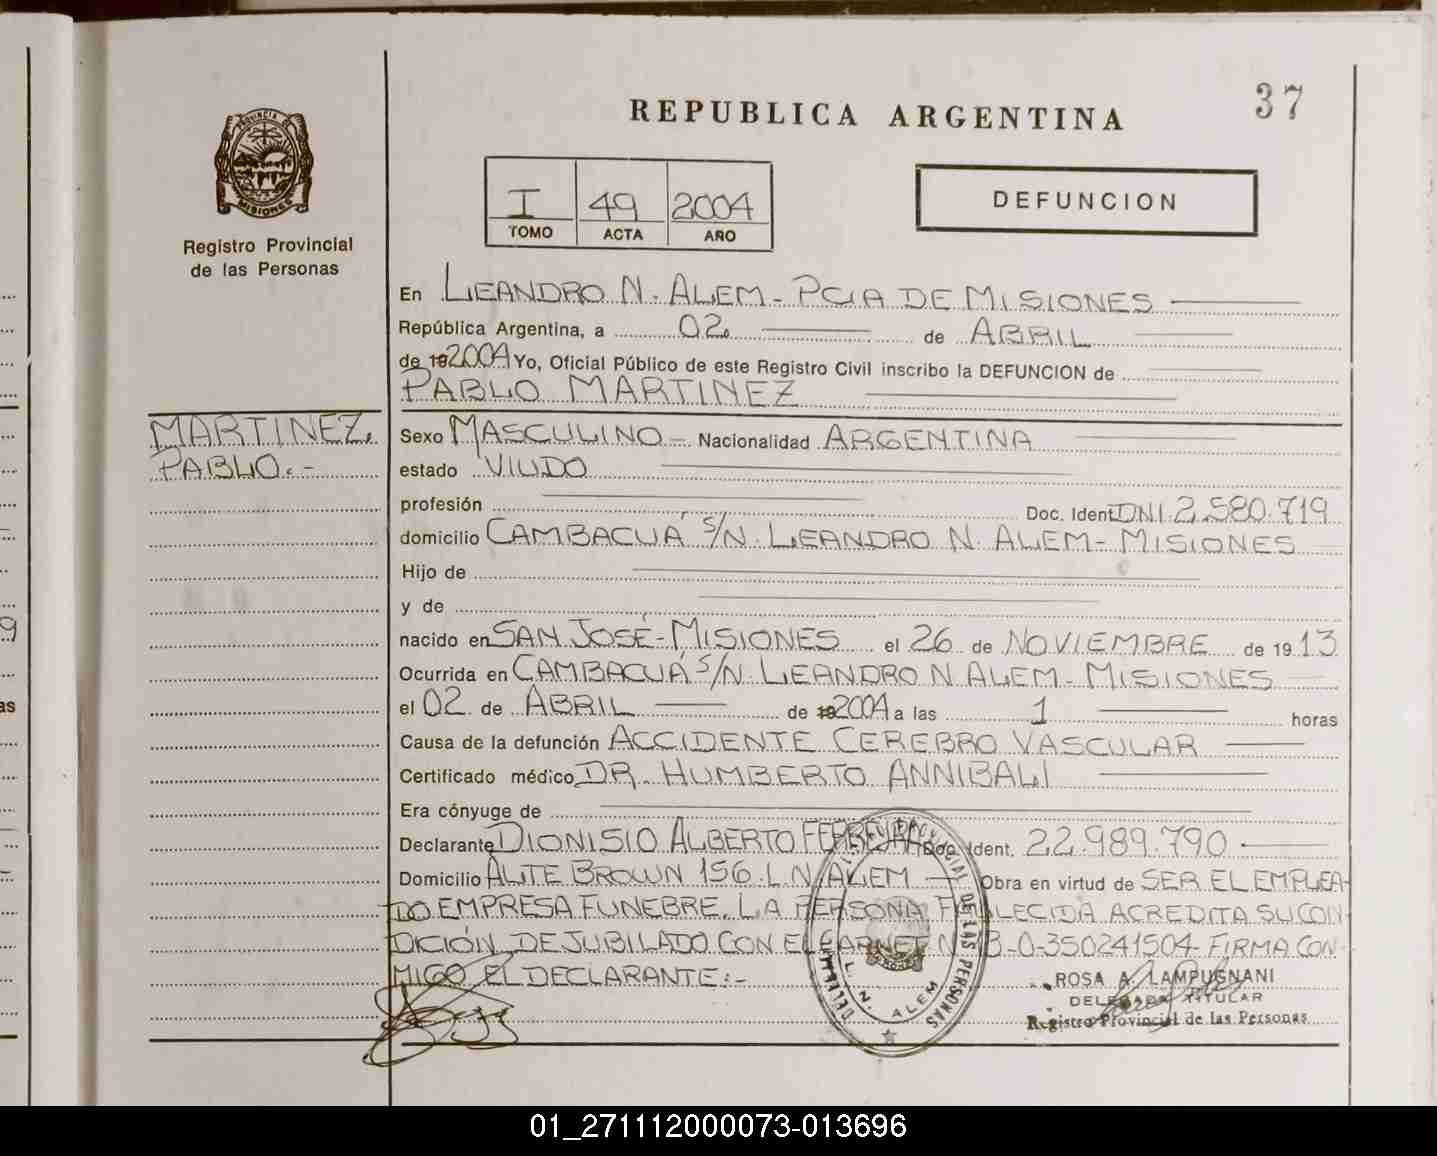 37
REPUBLICA ARGENTINA
PROVINCIA DE
MISIONES
Registro Provincial
de las Personas
I 49 2004
TOMO ACTA AÑO
DEFUNCION
En LEANDRO N. ALEM - PCIA DE MISIONES
República Argentina, a 02 de ABRIL
de 19 2004 Yo, Oficial Público de este Registro Civil inscribo la DEFUNCION de
PABLO MARTINEZ
MARTINEZ,
PABLO.-
Sexo MASCULINO - Nacionalidad ARGENTINA
estado VIUDO
profesión Doc. Ident. DNI 2.580.719
domicilio CAMBACUÁ S/N. LEANDRO N. ALEM - MISIONES
Hijo de
y de
nacido en SAN JOSÉ - MISIONES el 26 de NOVIEMBRE de 1913
Ocurrida en CAMBACUÁ S/N. LEANDRO N ALEM - MISIONES
el 02 de ABRIL de 19 2004 a las 1 horas
Causa de la defunción ACCIDENTE CEREBRO VASCULAR
Certificado médico DR. HUMBERTO ANNIBALI
Era cónyuge de
Declarante DIONISIO ALBERTO FERREYRA Doc. Ident. 22.989.790
Domicilio ALTE BROWN 156 L.N. ALEM Obra en virtud de SER EL EMPLEA-
DO EMPRESA FUNEBRE. LA PERSONA FALLECIDA ACREDITA SU CON-
DICIÓN DE JUBILADO CON EL CARNET N° 3-0-350241504- FIRMA CON-
MIGO EL DECLARANTE:-
PROVINCIAL DE LAS PERSONAS
L. N. ALEM
ROSA A. LAMPUGNANI
DELEGADA TITULAR
Registro Provincial de las Personas
01_271112000073-013696